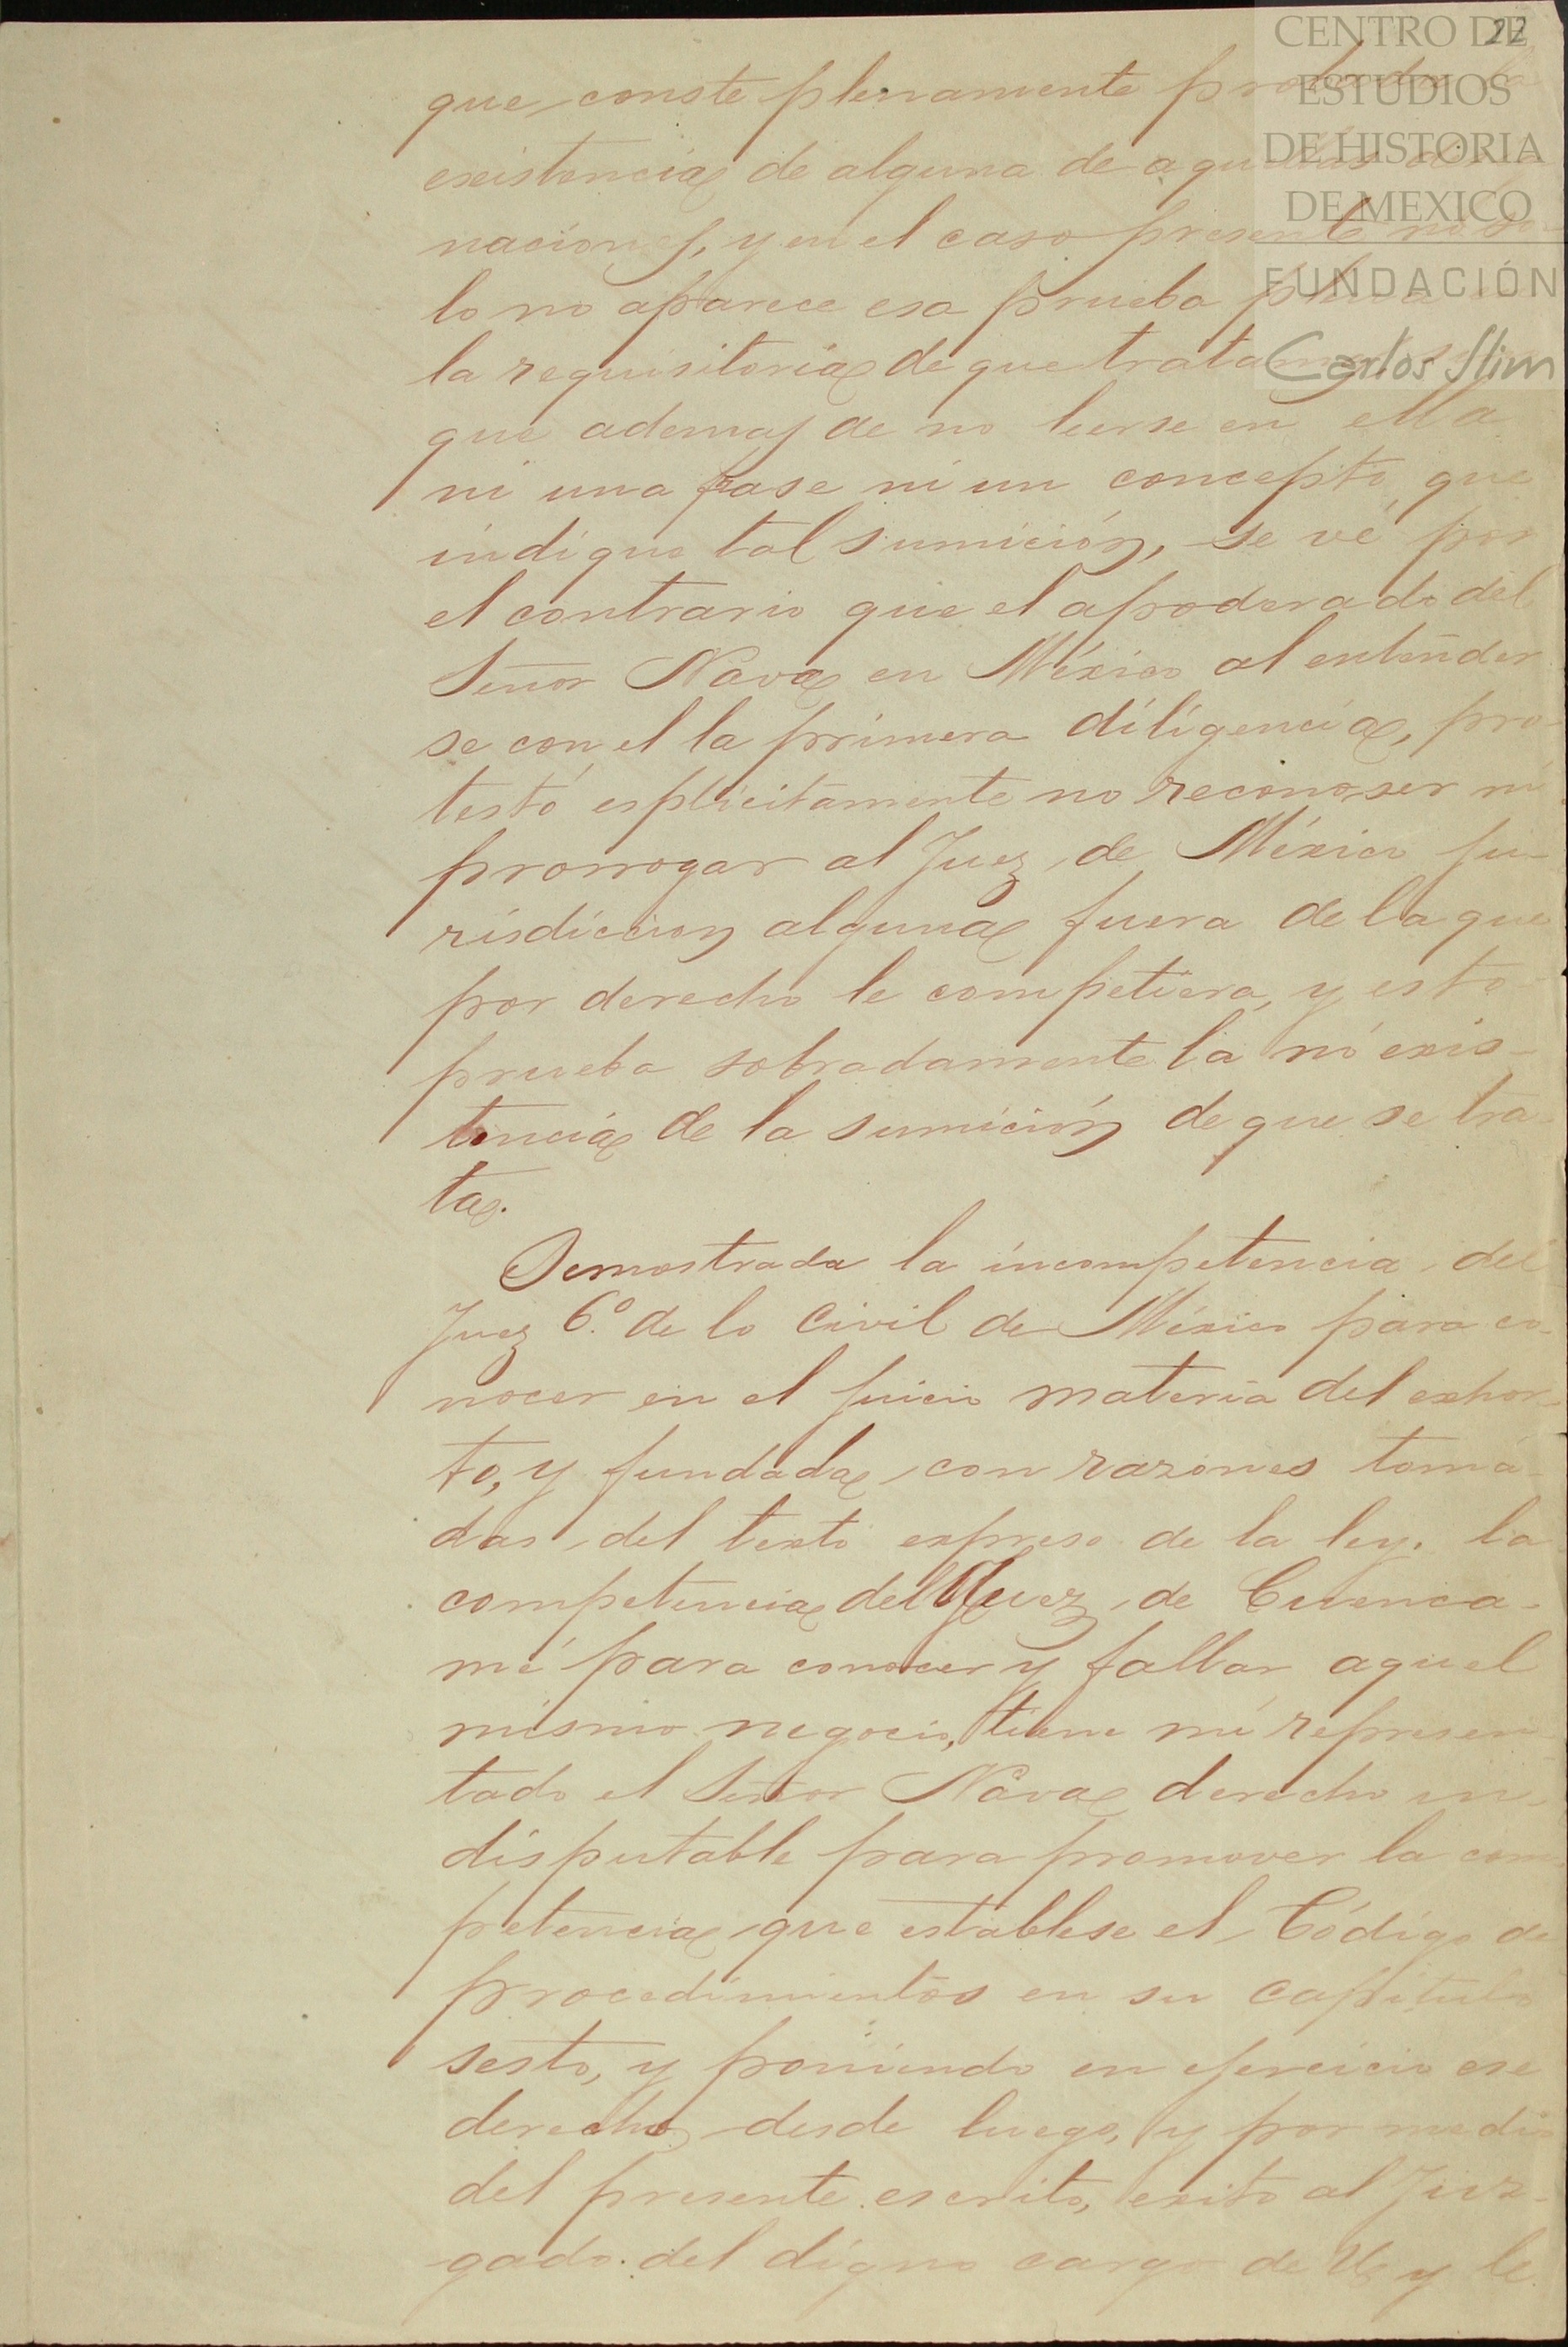 22
CENTRO DE
ESTUDIOS
DE HISTORIA
DE MEXICO
FUNDACIÓN
Carlos Slim
que conste plenamente
existencia de alguna de
naciones, y en el caso presente no so-
lo no aparece esa prueba
la requisitoria de que
que ademas de no leerse en ella
ni una frase ni un concepto que
indique tal sumición, se vé por
el contrario que el apoderado del
Señor Nava en México al entender
se con el la primera diligencia, pro-
testó esplicitamente no reconoser ni
prorrogar al Juez de México ju-
risdiccion alguna fuera de la que
por derecho le competiera, y esto
prueba sobradamente la no exis-
tencia de la sumición de que se tra-
ta.
Demostrada la incompetencia del
Juez 6.º de lo Civil de México para co-
nocer en el juicio materia del exhor-
to, y fundada con razones toma-
das del texto expreso de la ley, la
competencia del Juez de Cuenca-
mé para conocer y fallar aquel
mismo negocio, tiene mi represen
tado el Señor Nava derecho in-
disputable para promover la com
petencia que establese el Código de
procedimientos en su capitulo
sesto, y poniendo en ejercicio ese
derecho desde luego, y por medio
del presente escrito, exito al Juz-
gado del digno cargo de U. y le